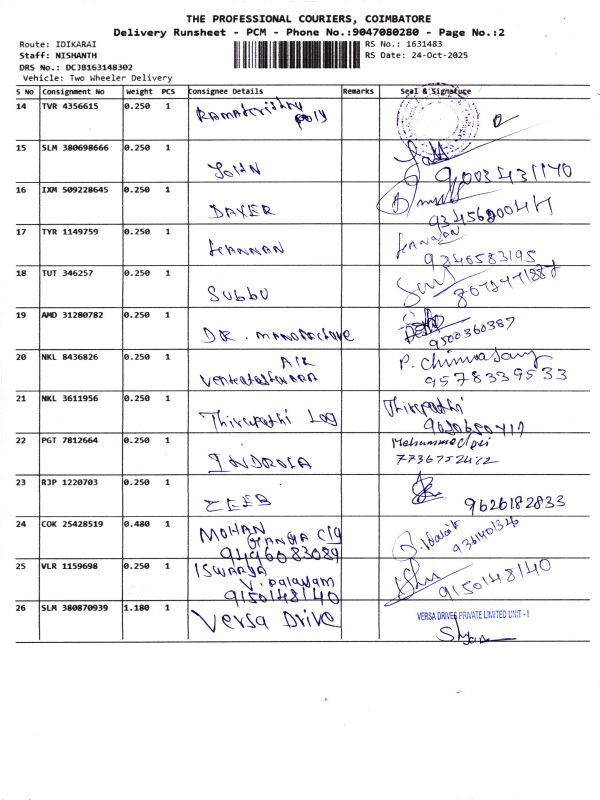 THE PROFESSIONAL COURIERS, COIMBATORE
Delivery Runsheet - PCM - Phone No.:9047080280 - Page No.:2
Route: IDIKARAI
Staff: NISHANTH
DRS No.: DCJB163148302
Vehicle: Two Wheeler Delivery
RS No.: 1631483
RS Date: 24-Oct-2025
S No Consignment No Weight PCS Consignee Details Remarks Seal & Signature
14 TVR 4356615 0.250 1 Ramakrishna poly
15 SLM 380698666 0.250 1 JOHN
9003431170
16 IXM 509228645 0.250 1
17 TYR 1149759 0.250 1 KANNAN Kannan
9346583195
18 TUT 346257 0.250 1 SUBBU
19 AMD 31280782 0.250 1
9500360387
20 NKL 8436826 0.250 1 AIR
P. Chinnasamy
9578339533
21 NKL 3611956 0.250 1 Thirupathi Log Thirupathi
22 PGT 7812664 0.250 1
23 RJP 1220703 0.250 1 9626182833
24 COK 25428519 0.480 1 MOHAN
GANGA
9496083089
25 VLR 1159698 0.250 1 ISWARYA
V. palayam
9150148140 9150148140
26 SLM 380870939 1.180 1 Versa Drive VERSA DRIVES PRIVATE LIMITED UNIT - I